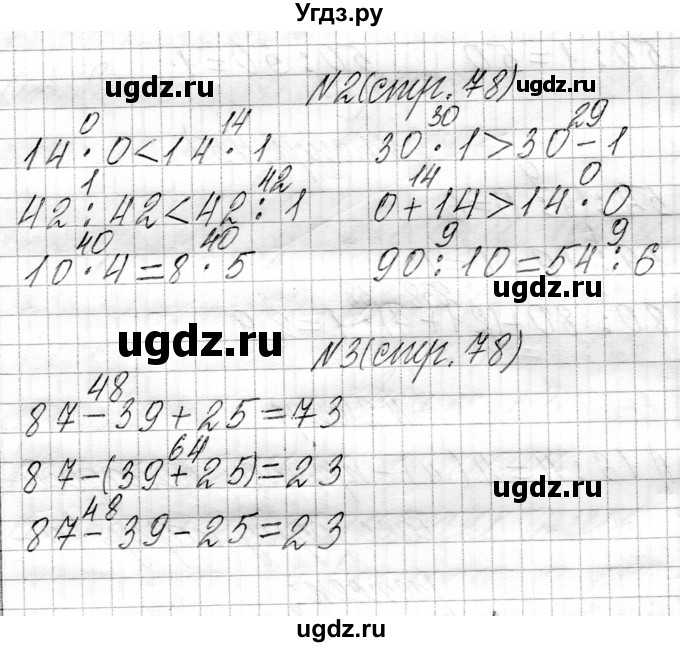 Угдз.ру
ugdz.ru №2(стр. 78) ugdz.ru
0 14 30 29
14 · 0 < 14 · 1 30 · 1 > 30 - 1
1 42 14 0
42 : 42 < 42 : 1 0 + 14 > 14 · 0
40 40 9 9
10 · 4 = 8 · 5 90 : 10 = 54 : 6
ugdz.ru
ugdz.ru №3(стр. 78)
48
87 - 39 + 25 = 73
64
87 - (39 + 25) = 23
ugdz.ru
48
87 - 39 - 25 = 23
ugdz.ru